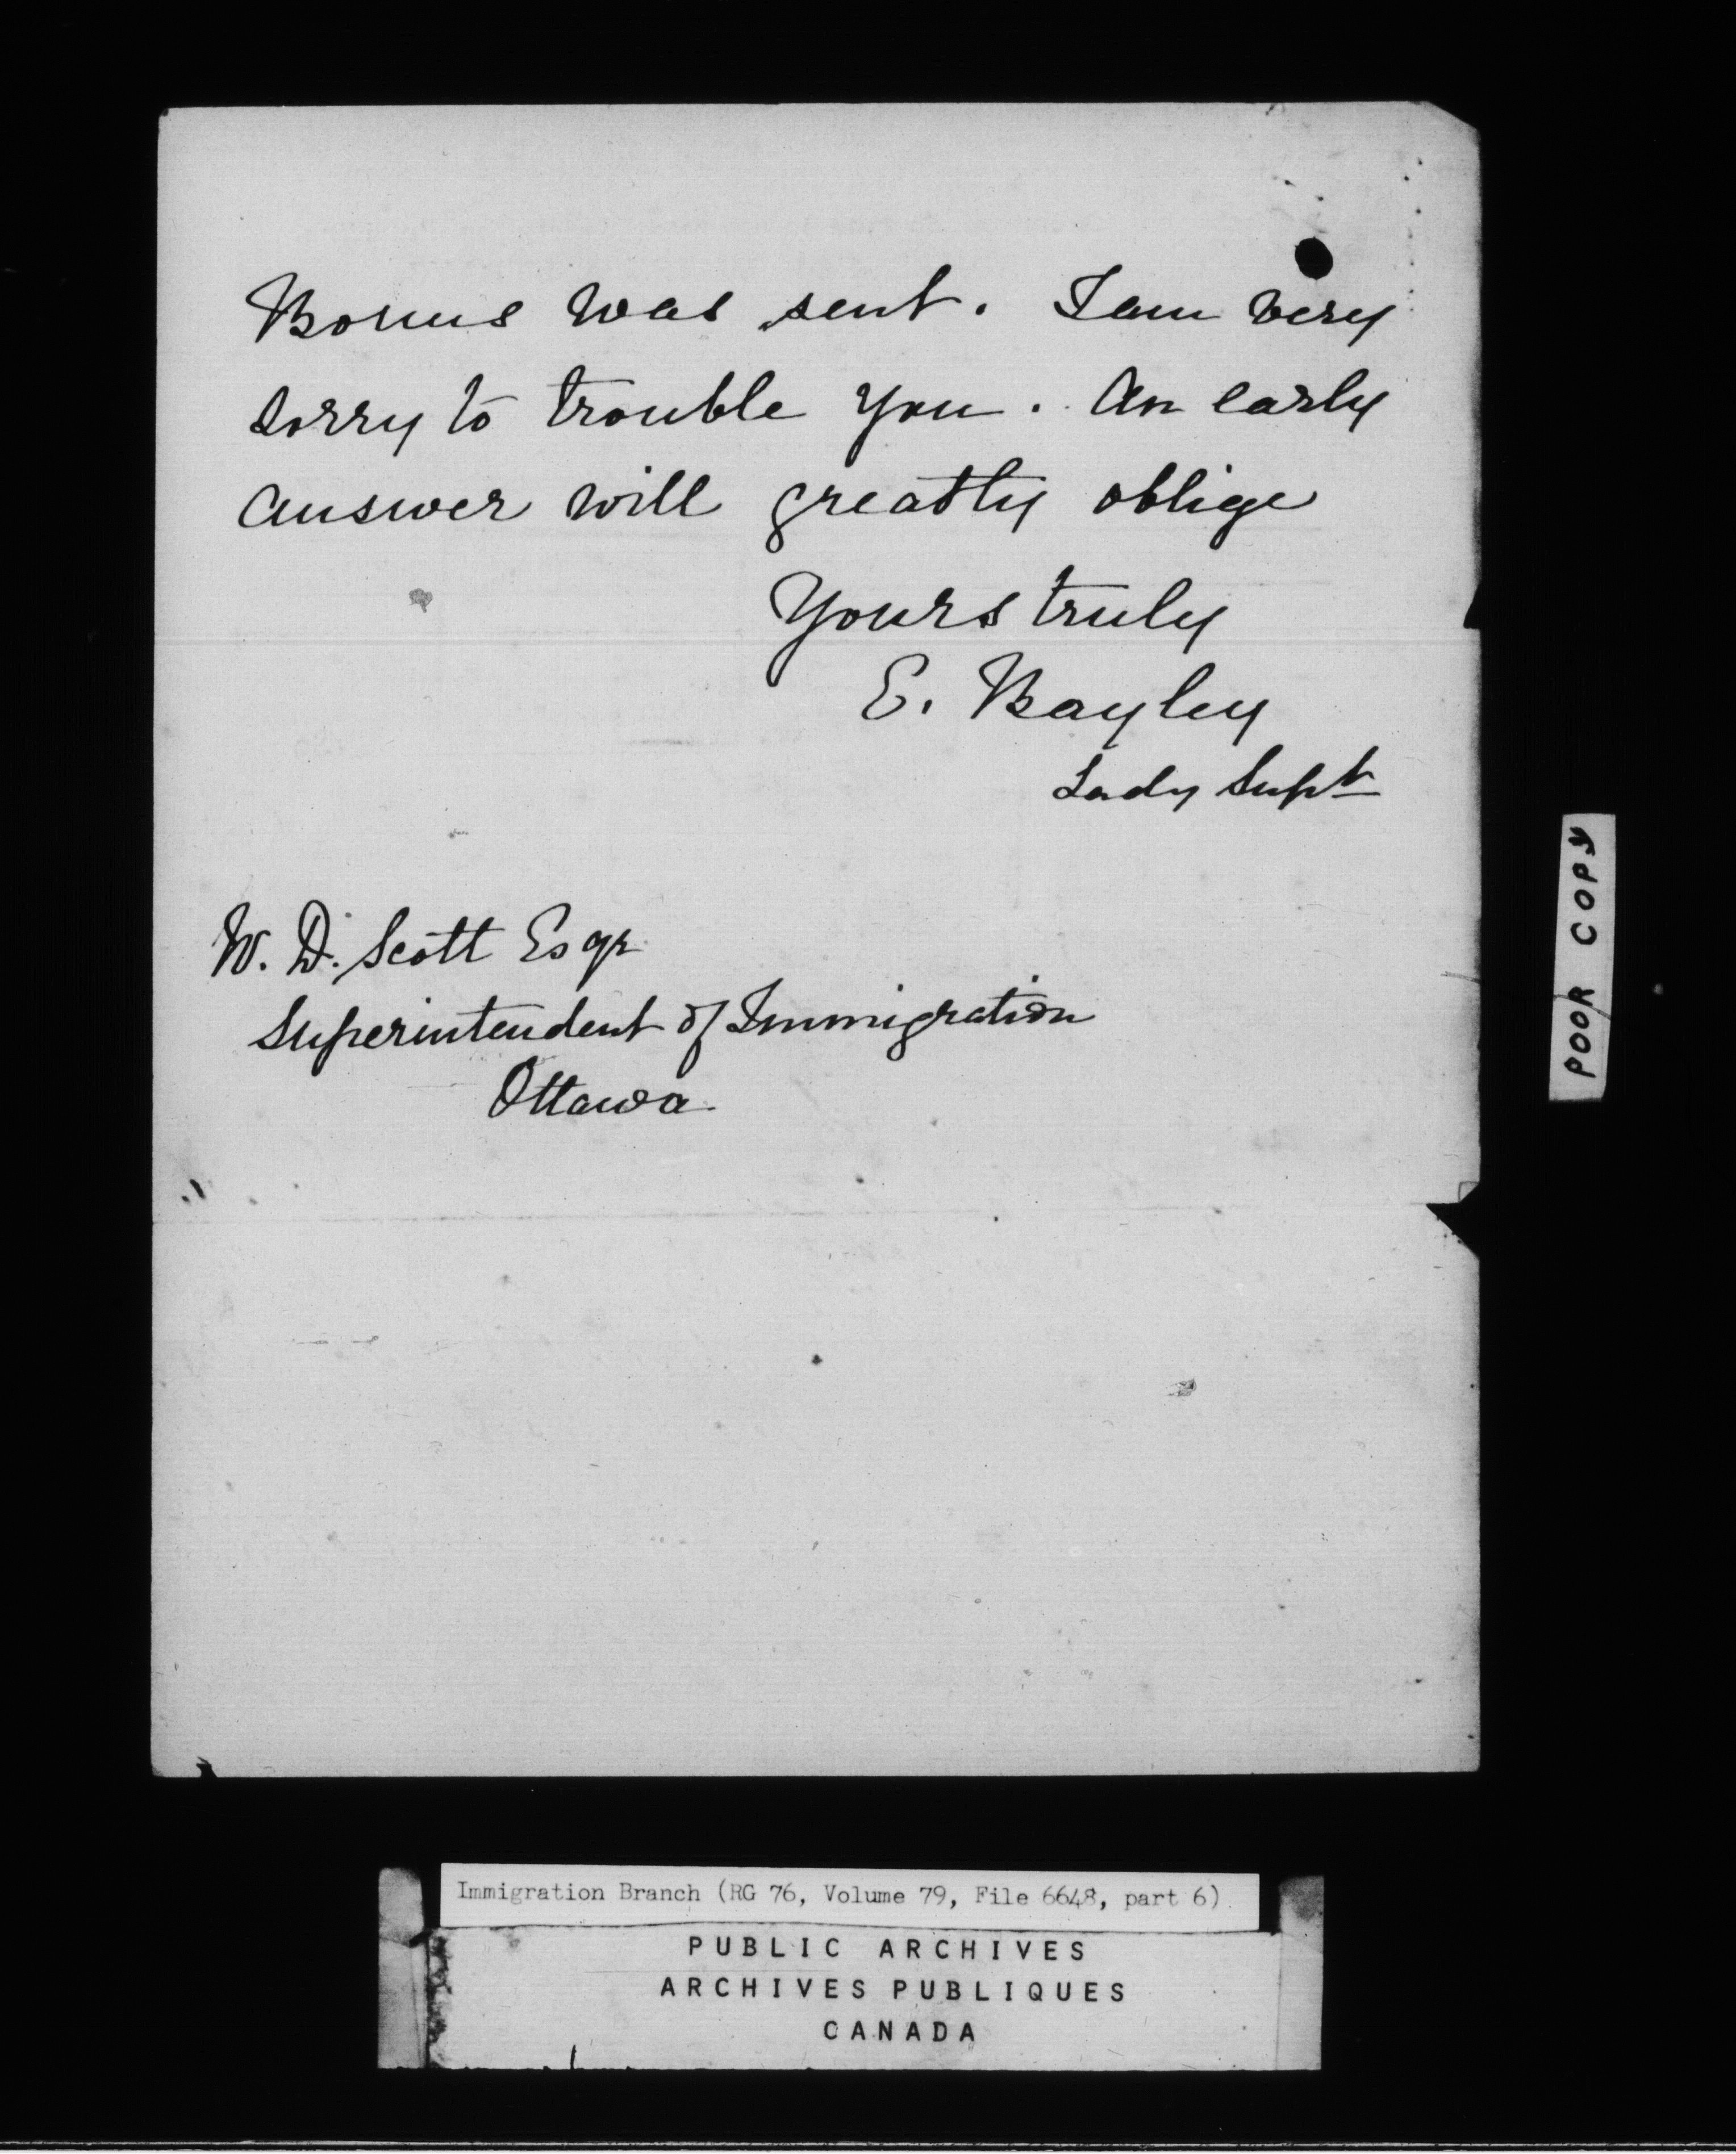 Bonus was sent. I am very
sorry to trouble you. An early
answer will greatly oblige
Yours truly
E. Bayley
Lady Supt
W. D. Scott Esqr
Superintendent of Immigration
Ottawa
POOR COPY
Immigration Branch (RG 76, Volume 79, File 6648, part 6)
PUBLIC ARCHIVES
ARCHIVES PUBLIQUES
CANADA